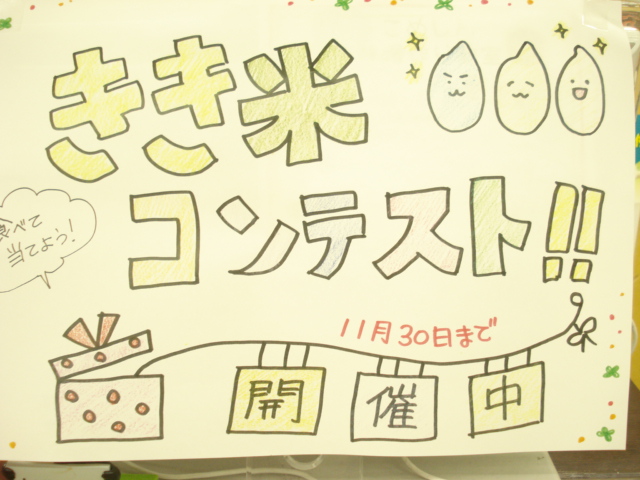 きき米
コンテスト!!
食べて
当てよう!
11月30日まで
開催中